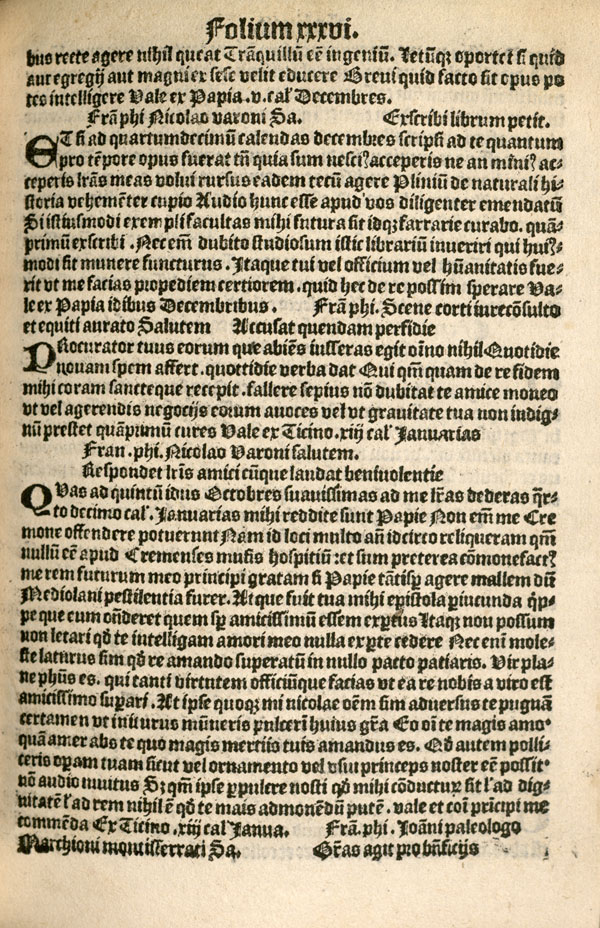 Folium xxxvi.
bus recte agere nihil queat Trãquillũ eẽ ingeniũ. Ietũqz oportet si quid
aut egregij aut magni ex sese velit educere Brevi quid facto sit opus po
tes intelligere Vale ex Papia .v. cal' Decembres.
Frã phi Nicolao varoni Sa. Exscribi librum petit.
ET si ad quartumdecimũ calendas decembres scripsi ad te quantum
pro tẽpore opus fuerat tñ quia sum nesci⁹ acceperis ne an mini⁹ ac⸗
ceperis lr̃as meas volui rursus eadem tecũ agere Pliniũ de naturali hi⸗
storia vehemẽter cupio Audio hunc esse apud vos diligenter emendatũ
Si istiusmodi exempli facultas mihi futura sit idqz farrarie curabo. quã⸗
primũ exscribi . Nec em̃ dubito studiosum istic librariũ inveniri qui hui⁹⸗
modi sit munere functurus . Itaque tui vel officium vel hũanitatis fue⸗
rit vt me facias propediem certiorem . quid hec de re possim sperare Va⸗
le ex Papia idibus Decembribus . Frã phi. Scene corti iureconsulto
et equiti aurato Salutem Accusat quendam perfidie
PRocurator tuus eorum que abiẽs iusseras egit oĩno nihil Quotidie
novam spem affert . quottidie verba dat Qui qm̃ quam de re fidem
mihi coram sancteque recepit . fallere sepius nõ dubitat te amice moneo
vt vel agerendis negocijs eorum avoces vel vt gravitate tua non indig⸗
nũ prestet quãprimũ cures Vale ex Ticino . xiij cal' Januarias
Fran . phi . Nicolao Varoni salutem .
Respondet lr̃is amici cũque laudat benivolentie
QVas ad quintũ idus Octobres suavissimas ad me lr̃as dederas q̃r⸗
to decimo cal'. Januarias mihi reddite sunt Papie Non em̃ me Cre
mone offendere potuerunt Nam id loci multo añ idcirco reliqueram qm̃
nullũ eẽ apud Cremenses musis hospitiũ : et sum preterea cõmonefact⁹
me rem futurum meo principi gratam si Papie tãtisp̱ agere mallem dũ
Mediolani pestilentia furer. Atque fuit tua mihi epistola p̱iucunda q̃p⸗
pe que eum oñderet quem sp̱ amicissimũ essem exp̱tus Itaqz non possum
non letari qd̃ te intelligam amori meo nulla exp̱te cedere Nec enim mole⸗
ste laturus sim qd̃ re amando superatũ in nullo pacto patiaris. Vir pla⸗
ne phũs es. qui tanti virtutem officiũque facias vt ea re nobis a viro est
amicissimo sup̱ari . At ipse quoqz mi nicolae oẽm sim adversus te pugnã
certamen vt initurus mũneris p̱ulcerri huius gr̃a Eo oĩ te magis amo⸗
quã amer abs te quo magis meritis tuis amandus es. Qd̃ autem polli⸗
ceris op̱am tuam sicut vel ornamento vel vsui princeps noster eẽ possit
nõ audio invitus Sz qm̃ ipse p̱pulcre nosti qd̃ mihi cõductur̃ sit l' ad dig⸗
nitatẽ l' ad rem nihil ẽ qd̃ te mais admonendũ putẽ . vale et coĩ prĩcipi me
commẽda Ex Ticino . xiij cal' Janua. Frã . phi . Joãni paleologo
Marchioni montisferrati Sa. Gr̃as agit pro bñficijs